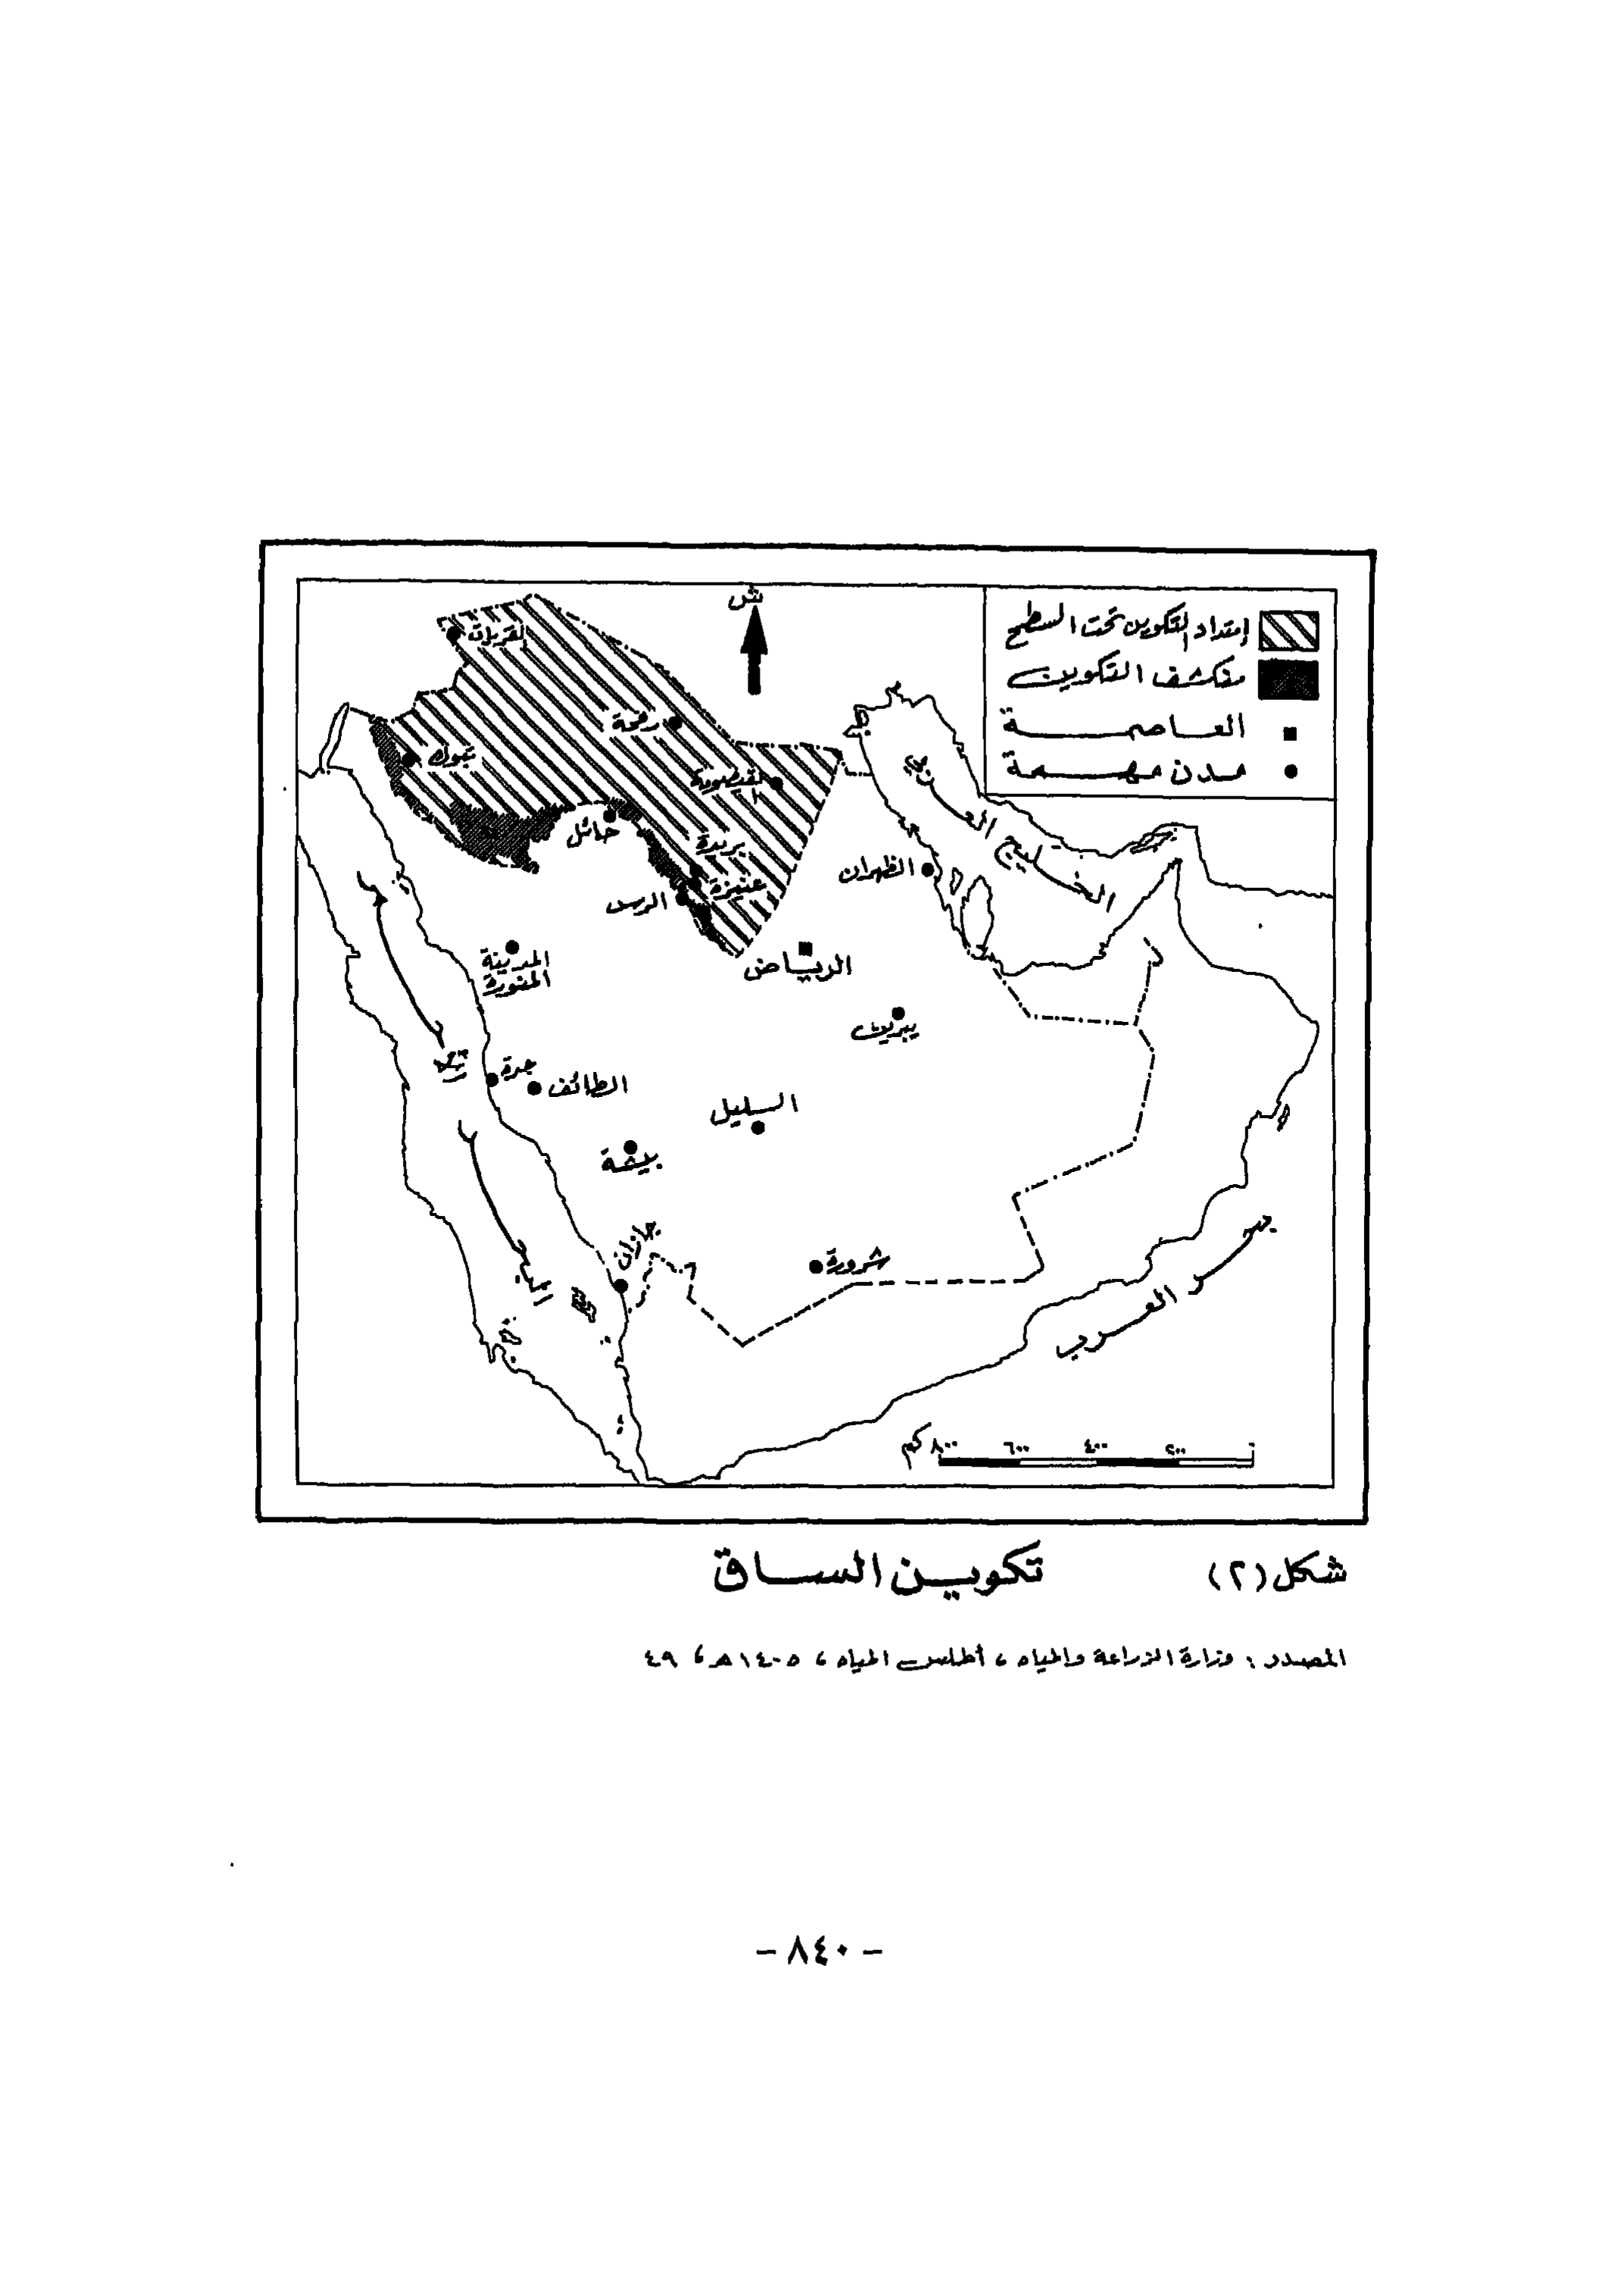 ش
إمتداد التكوين تحت السطح
منكشف التكوين
العاصمة
مدن مهمة
القريات
رفحة
تبوك
القيصومة
حائل
بريدة
عنيزة
الرس
الظهران
الخليج العربي
المدينة
المنورة
الرياض
يبرين
جدة
الطائف
السليل
بيشة
جازان
شرورة
بحر العرب
٠ ٢٠٠ ٤٠٠ ٦٠٠ ٨٠٠ كم
شكل (٢) تكوين الساق
المصدر : وزارة الزراعة والمياه ، أطلس المياه ، ١٤٠٥هـ ، ٤٩
- ٨٤٠ -